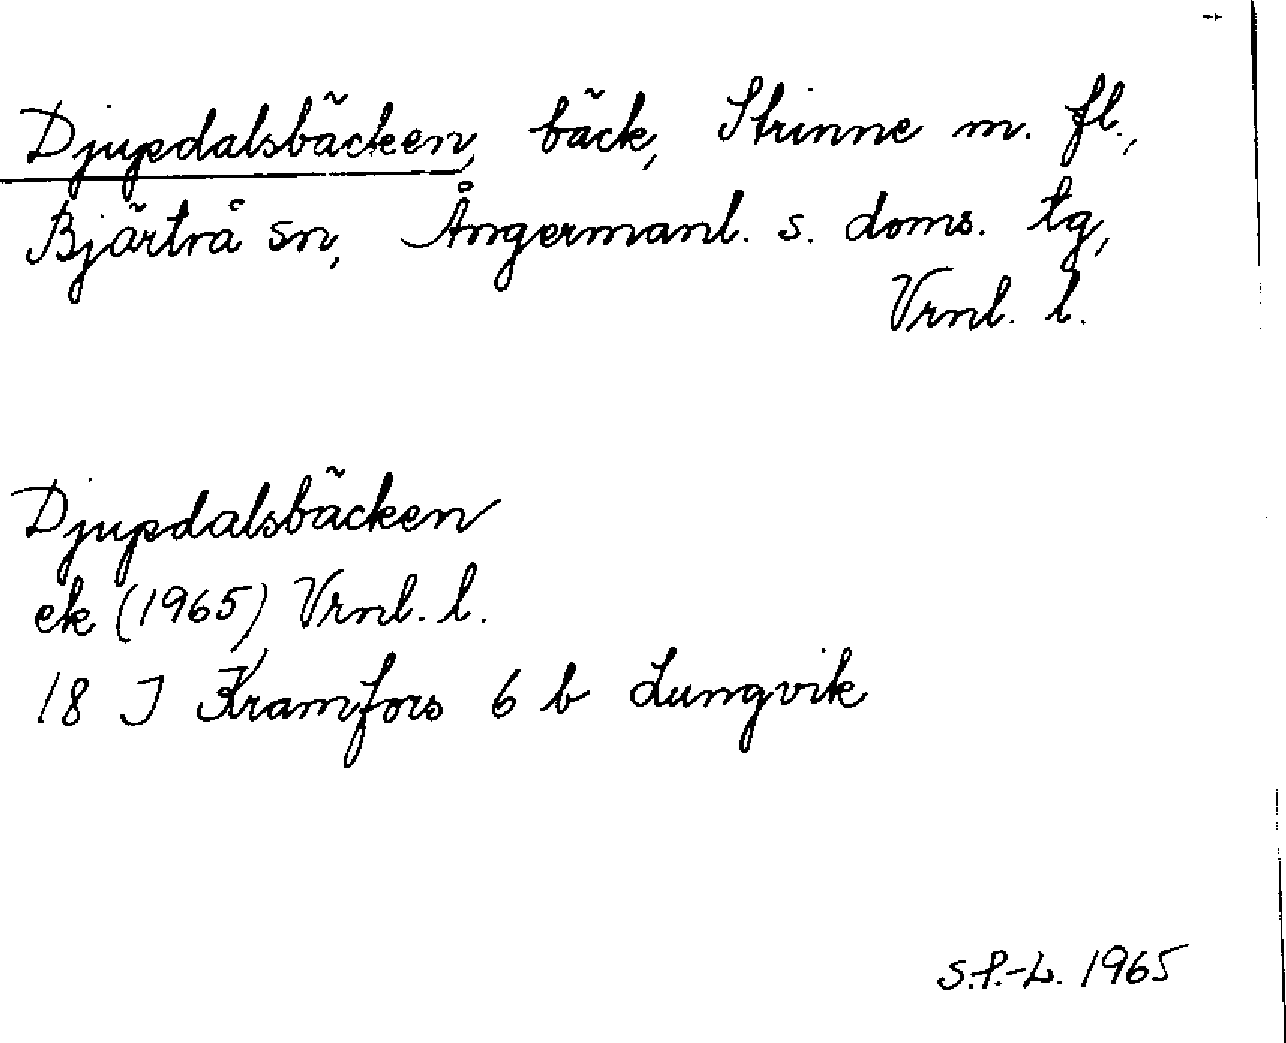 Djupdalsbäcken, bäck, Strinne m. fl.,
Bjärtrå sn, Ångermanl. s. doms. tg,
Vrnl. l.
Djupdalsbäcken
ek (1965) Vrnl. l.
18 J Kramfors 6 b Lungvik
S.P.-L. 1965